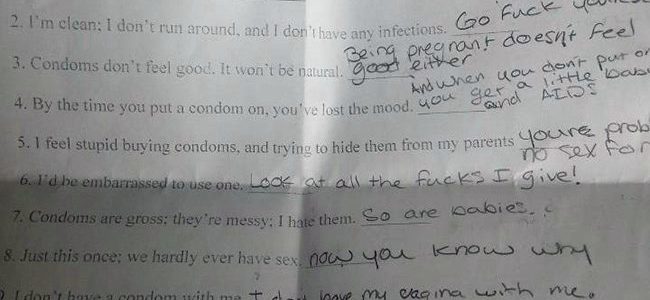 2. I'm clean; I don't run around, and I don't have any infections. Go Fuck
3. Condoms don't feel good. It won't be natural. Being pregnant doesn't feel good either
4. By the time you put a condom on, you've lost the mood. And when you don't put on you get a little baby and AIDS
5. I feel stupid buying condoms, and trying to hide them from my parents youre prob no sex for
6. I'd be embarrassed to use one. Look at all the fucks I give!
7. Condoms are gross; they're messy; I hate them. So are babies.
8. Just this once; we hardly ever have sex. now you know why
I don't have a condom with me I don't have my vagina with me.